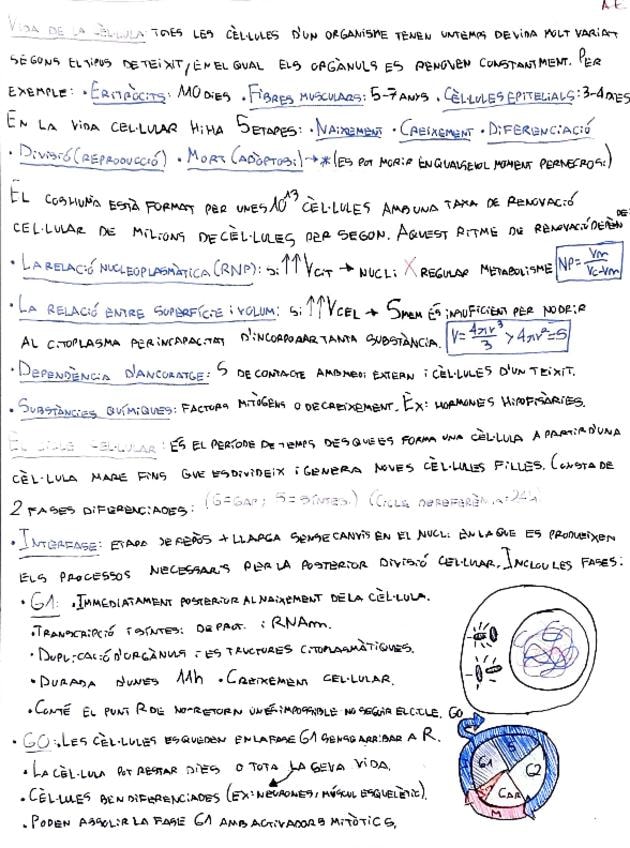 A.E
VIDA DE LA CÈL·LULA: TOTES LES CÈL·LULES D'UN ORGANISME TENEN UN TEMPS DE VIDA MOLT VARIAT
SEGONS EL TIPUS DE TEIXIT, EN EL QUAL ELS ORGÀNULS ES RENOVEN CONSTANTMENT. PER
EXEMPLE: · ERITRÒCITS: 110 DIES · FIBRES MUSCULARS: 5-7 ANYS · CÈL·LULES EPITELIALS: 3-4 DIES
EN LA VIDA CEL·LULAR HI HA 5 ETAPES: · NAIXEMENT · CREIXEMENT · DIFERENCIACIÓ
· DIVISIÓ (REPRODUCCIÓ) · MORT (ADÒPTOSI) → * (ES POT MORIR EN QUALSEVOL MOMENT PER NECROSI)
EL COS HUMÀ ESTÀ FORMAT PER UNES 10¹³ CÈL·LULES AMB UNA TAXA DE RENOVACIÓ
CEL·LULAR DE MILIONS DE CÈL·LULES PER SEGON. AQUEST RITME DE RENOVACIÓ DEPÈN DE:
· LA RELACIÓ NUCLEOPLASMÀTICA (RNP): SI ↑↑ Vcit → NUCLI X REGULAR METABOLISME NP = Vn / Vc-Vn
· LA RELACIÓ ENTRE SUPERFÍCIE I VOLUM: SI ↑↑ VCEL → SMEM ÉS INSUFICIENT PER NODRIR
AL CITOPLASMA PER INCAPACITAT D'INCORPORAR TANTA SUBSTÀNCIA. V = 4πr³/3 > 4πr² = S
· DEPENDÈNCIA D'ANCORATGE: S DE CONTACTE AMB MEDI EXTERN I CÈL·LULES D'UN TEIXIT.
· SUBSTÀNCIES QUÍMIQUES: FACTORS MITÒGENS O DE CREIXEMENT. EX: HORMONES HIPOFISÀRIES.
EL CICLE CEL·LULAR: ÉS EL PERÍODE DE TEMPS DES QUE ES FORMA UNA CÈL·LULA A PARTIR D'UNA
CÈL·LULA MARE FINS QUE ES DIVIDEIX I GENERA NOVES CÈL·LULES FILLES. CONSTA DE
2 FASES DIFERENCIADES: (G=GAP; S=SÍNTESI) (CICLE DE REFERÈNCIA: 24h)
· INTERFASE: ETAPA DE REPÒS + LLARGA SENSE CANVIS EN EL NUCLI EN LA QUE ES PRODUEIXEN
ELS PROCESSOS NECESSARIS PER LA POSTERIOR DIVISIÓ CEL·LULAR. INCLOU LES FASES:
· G1: · IMMEDIATAMENT POSTERIOR AL NAIXEMENT DE LA CÈL·LULA.
· TRANSCRIPCIÓ I SÍNTESI DE PROT. I RNAm.
· DUPLICACIÓ D'ORGÀNULS I ESTRUCTURES CITOPLASMÀTIQUES.
· DURADA D'UNES 11h · CREIXEMENT CEL·LULAR.
· CONTÉ EL PUNT R DE NO-RETORN ON ÉS IMPOSSIBLE NO SEGUIR EL CICLE.
· G0: · LES CÈL·LULES ES QUEDEN EN LA FASE G1 SENSE ARRIBAR A R.
· LA CÈL·LULA POT RESTAR DIES O TOTA LA SEVA VIDA.
· CÈL·LULES BEN DIFERENCIADES (EX: NEURONES, MÚSCUL ESQUELÈTIC).
· PODEN ASSOLIR LA FASE G1 AMB ACTIVADORS MITÒTICS.
G0
G1
S
G2
M